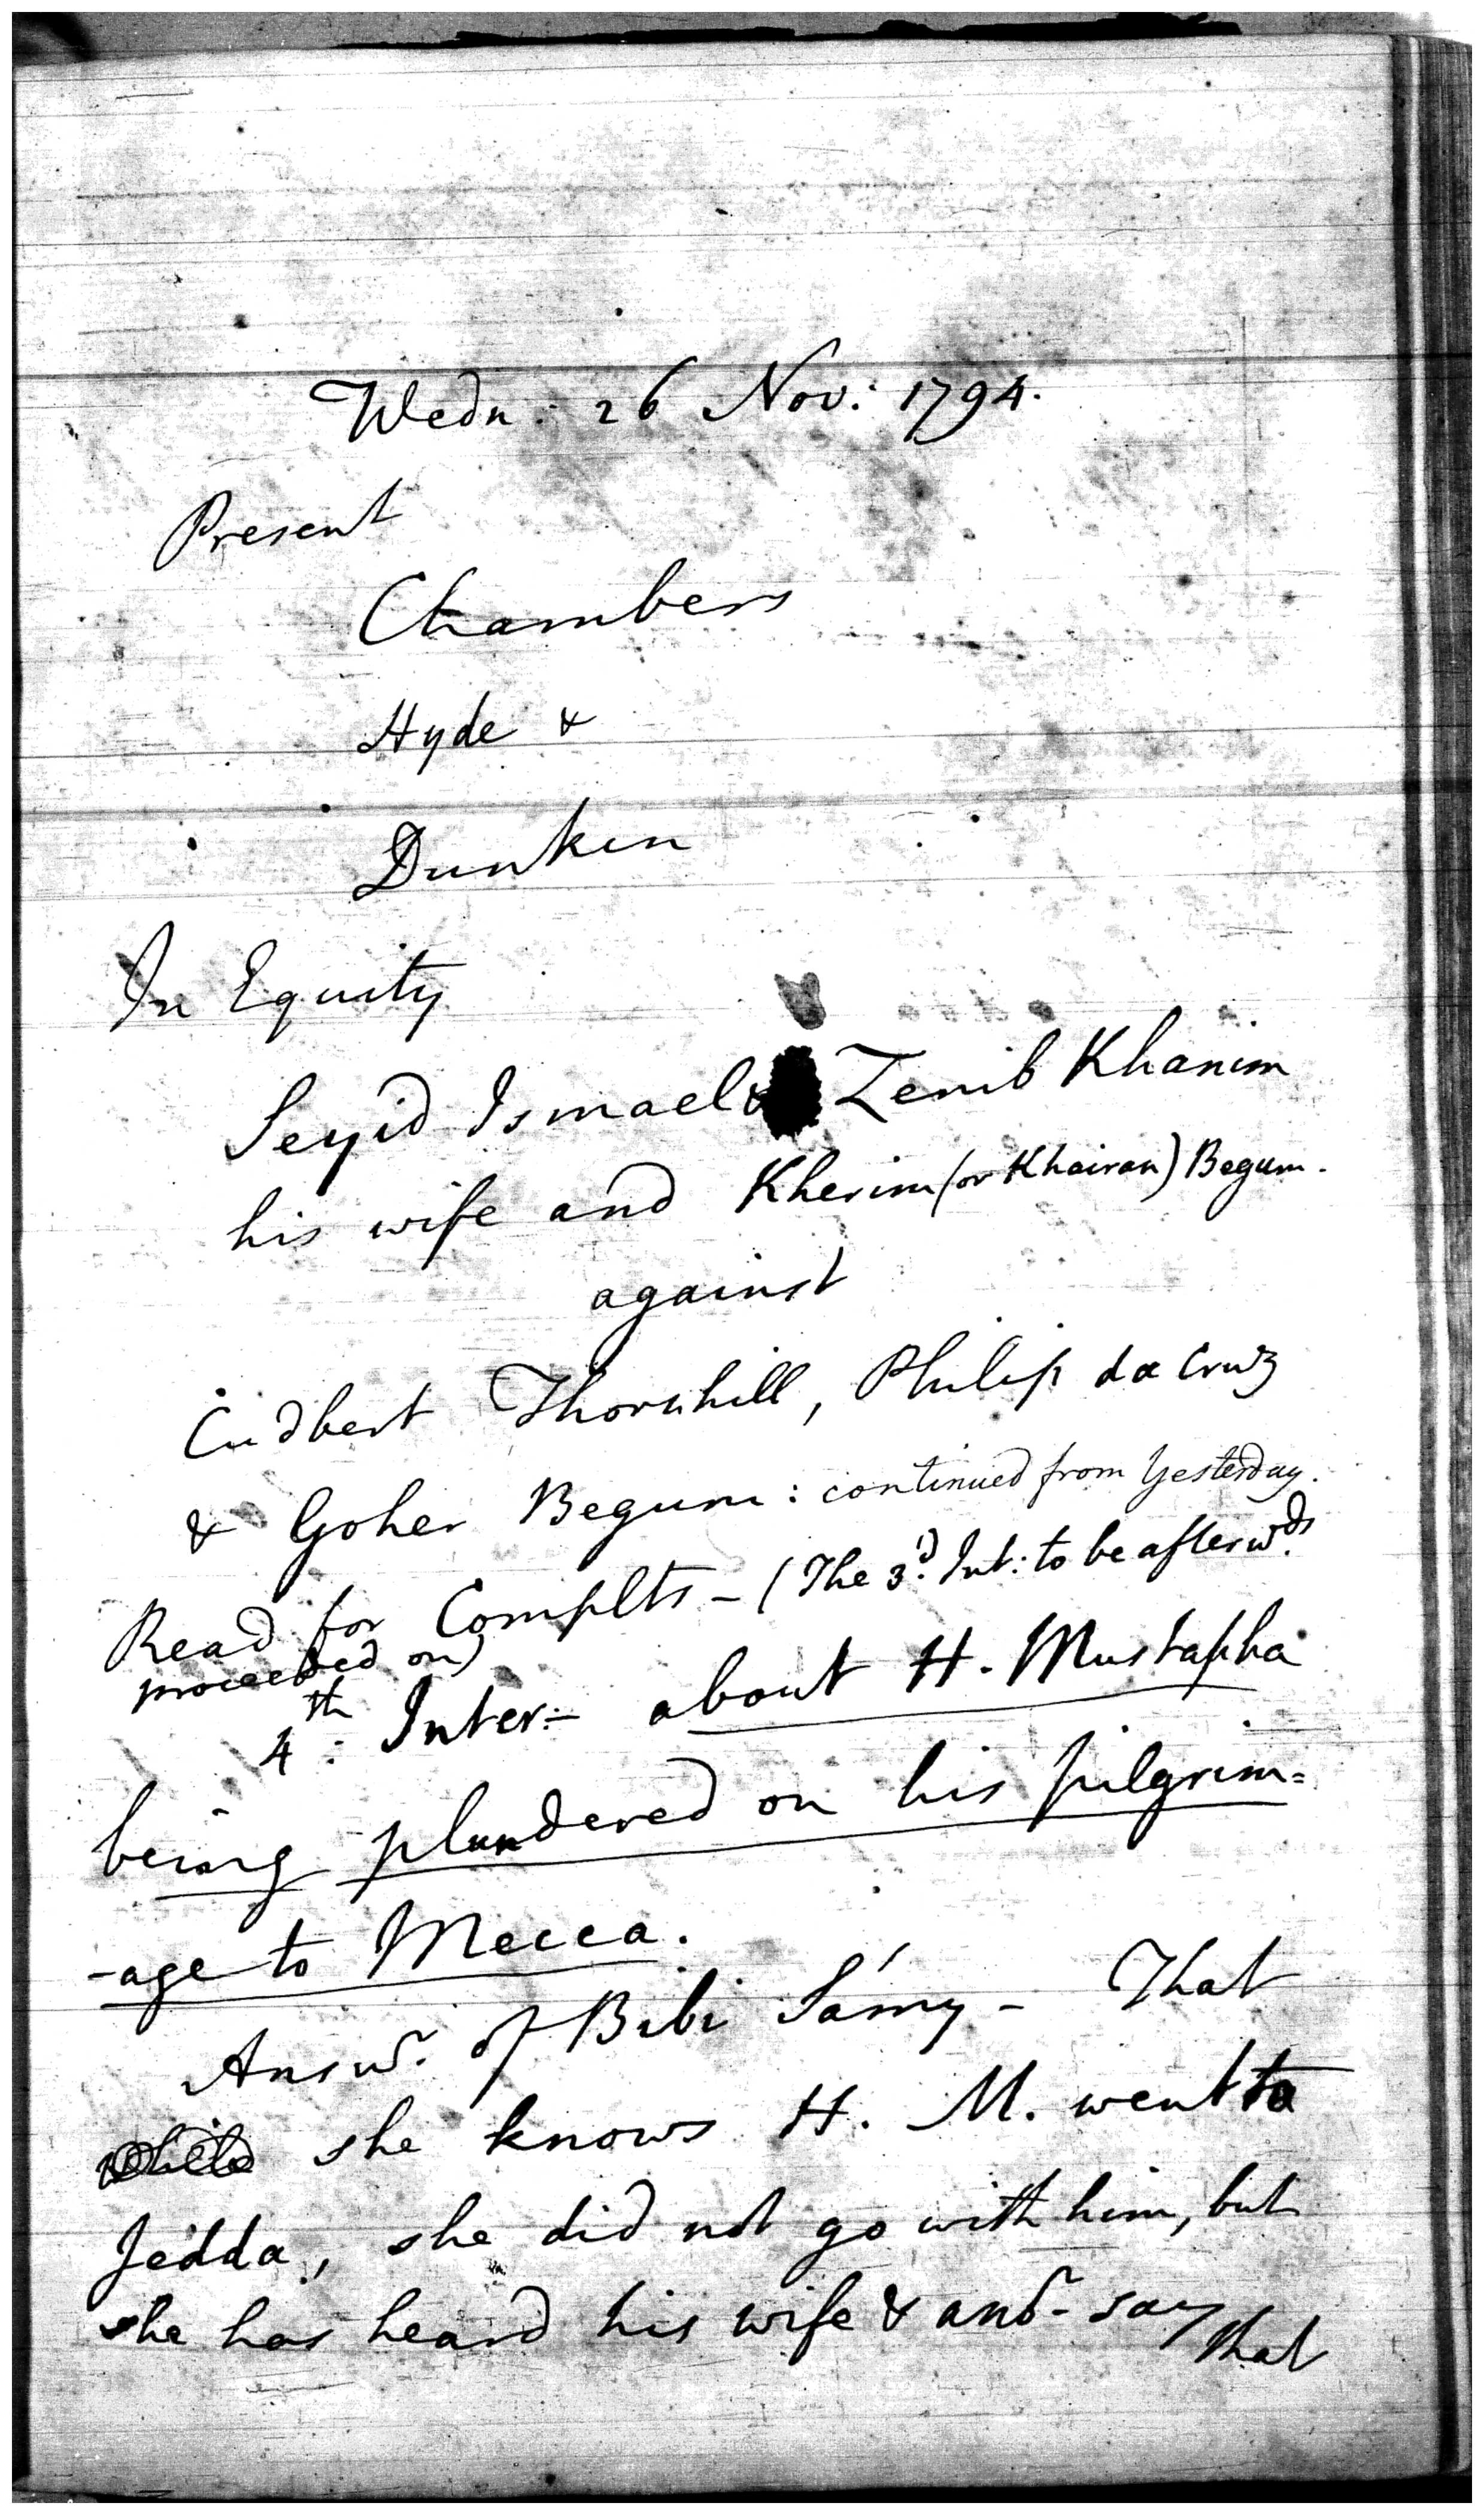 Wedn: 26 Nov: 1794.
Present
Chambers
Hyde &
Dunkin
In Equity
Seyid Ismael & Zenib Khanim
his wife and Kherim (or Khairan) Begum.
against
Cudbert Thornhill, Philip da Cruz
& Goher Begum: continued from Yesterday.
Read for Complts - (The 3d. Int: to be afterwds.
proceeded on)
4th: Inter:- about H. Mustapha
being plundered on his pilgrim=
-age to Mecca.
Answr. of Bibi Sámy - That
she knows H. M. went to
Jedda, she did not go with him, but
she has heard his wife & say that